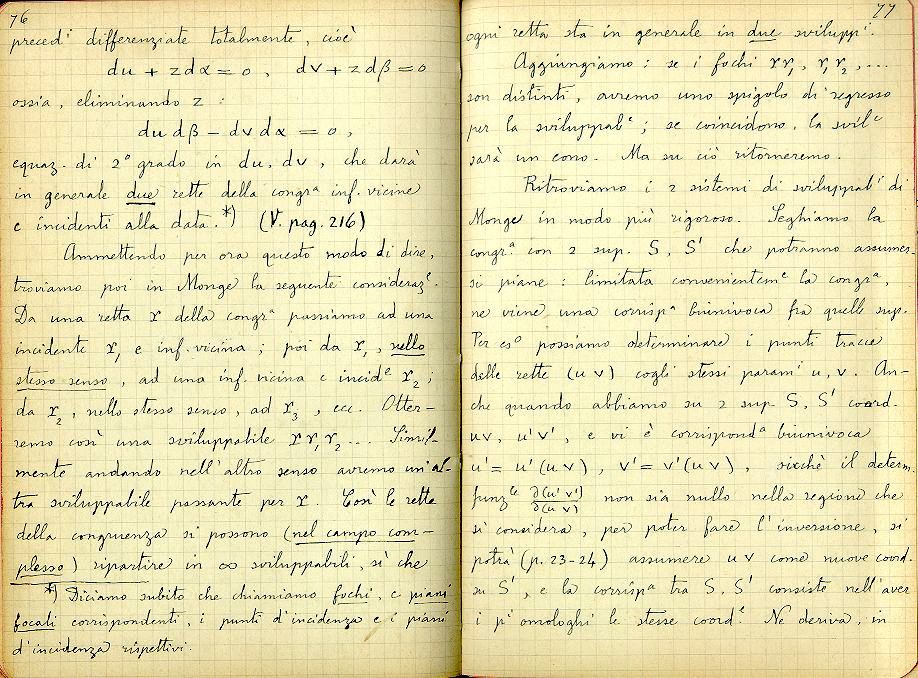 76
precedⁱ differenziate totalmente, cioè
du + zdα = 0, dv + zdβ = 0
ossia, eliminando z :
du dβ – dv dα = 0,
equaz. di 2º grado in du, dv, che darà
in generale due rette della congrᵃ inf. vicine
e incidenti alla data.*) (V. pag. 216)
Ammettendo per ora questo modo di dire,
troviamo poi in Monge la seguente considerazᵉ.
Da una retta r della congrᵃ passiamo ad una
incidente r₁ e inf. vicina ; poi da r₁, nello
stesso senso, ad una inf. vicina e incidᵉ r₂ ;
da r₂, nello stesso senso, ad r₃, ecc. Otter-
remo così una sviluppabile r r₁ r₂ ... Simil-
mente andando nell'altro senso avremo un'al-
tra sviluppabile passante per r. Così le rette
della congruenza si possono (nel campo com-
plesso) ripartire in ∞ sviluppabili, sì che
*) Diciamo subito che chiamiamo fochi, e piani
focali corrispondenti, i punti d'incidenza e i piani
d'incidenza rispettivi.
77
ogni retta sta in generale in due sviluppⁱ.
Aggiungiamo : se i fochi r r₁, r₁ r₂, ...
son distinti, avremo uno spigolo di regresso
per la sviluppabᵉ ; se coincidono, la svilᵉ
sarà un cono. Ma su ciò ritorneremo.
Ritroviamo i 2 sistemi di sviluppabⁱ di
Monge in modo più rigoroso. Seghiamo la
congrᵃ con 2 sup. S, S' che potranno assumer-
si piane : limitata convenientemᵉ la congrᵃ,
ne viene una corrispᵃ biunivoca fra quelle sup.
Per esº possiamo determinare i punti tracce
delle rette (u v) cogli stessi paramⁱ u, v. An-
che quando abbiamo su 2 sup. S, S' coord.
uv, u'v', e vi è corrispondᵃ biunivoca
u' = u'(uv), v' = v'(uv), sicchè il determ.
funzˡᵉ ∂(u'v')/∂(uv) non sia nullo nella regione che
si considera, per poter fare l'inversione, si
potrà (p. 23-24) assumere uv come nuove coord.
su S', e la corrispᵃ tra S, S' consiste nell'aver
i pⁱ omologhi le stesse coordᵉ. Ne deriva, in